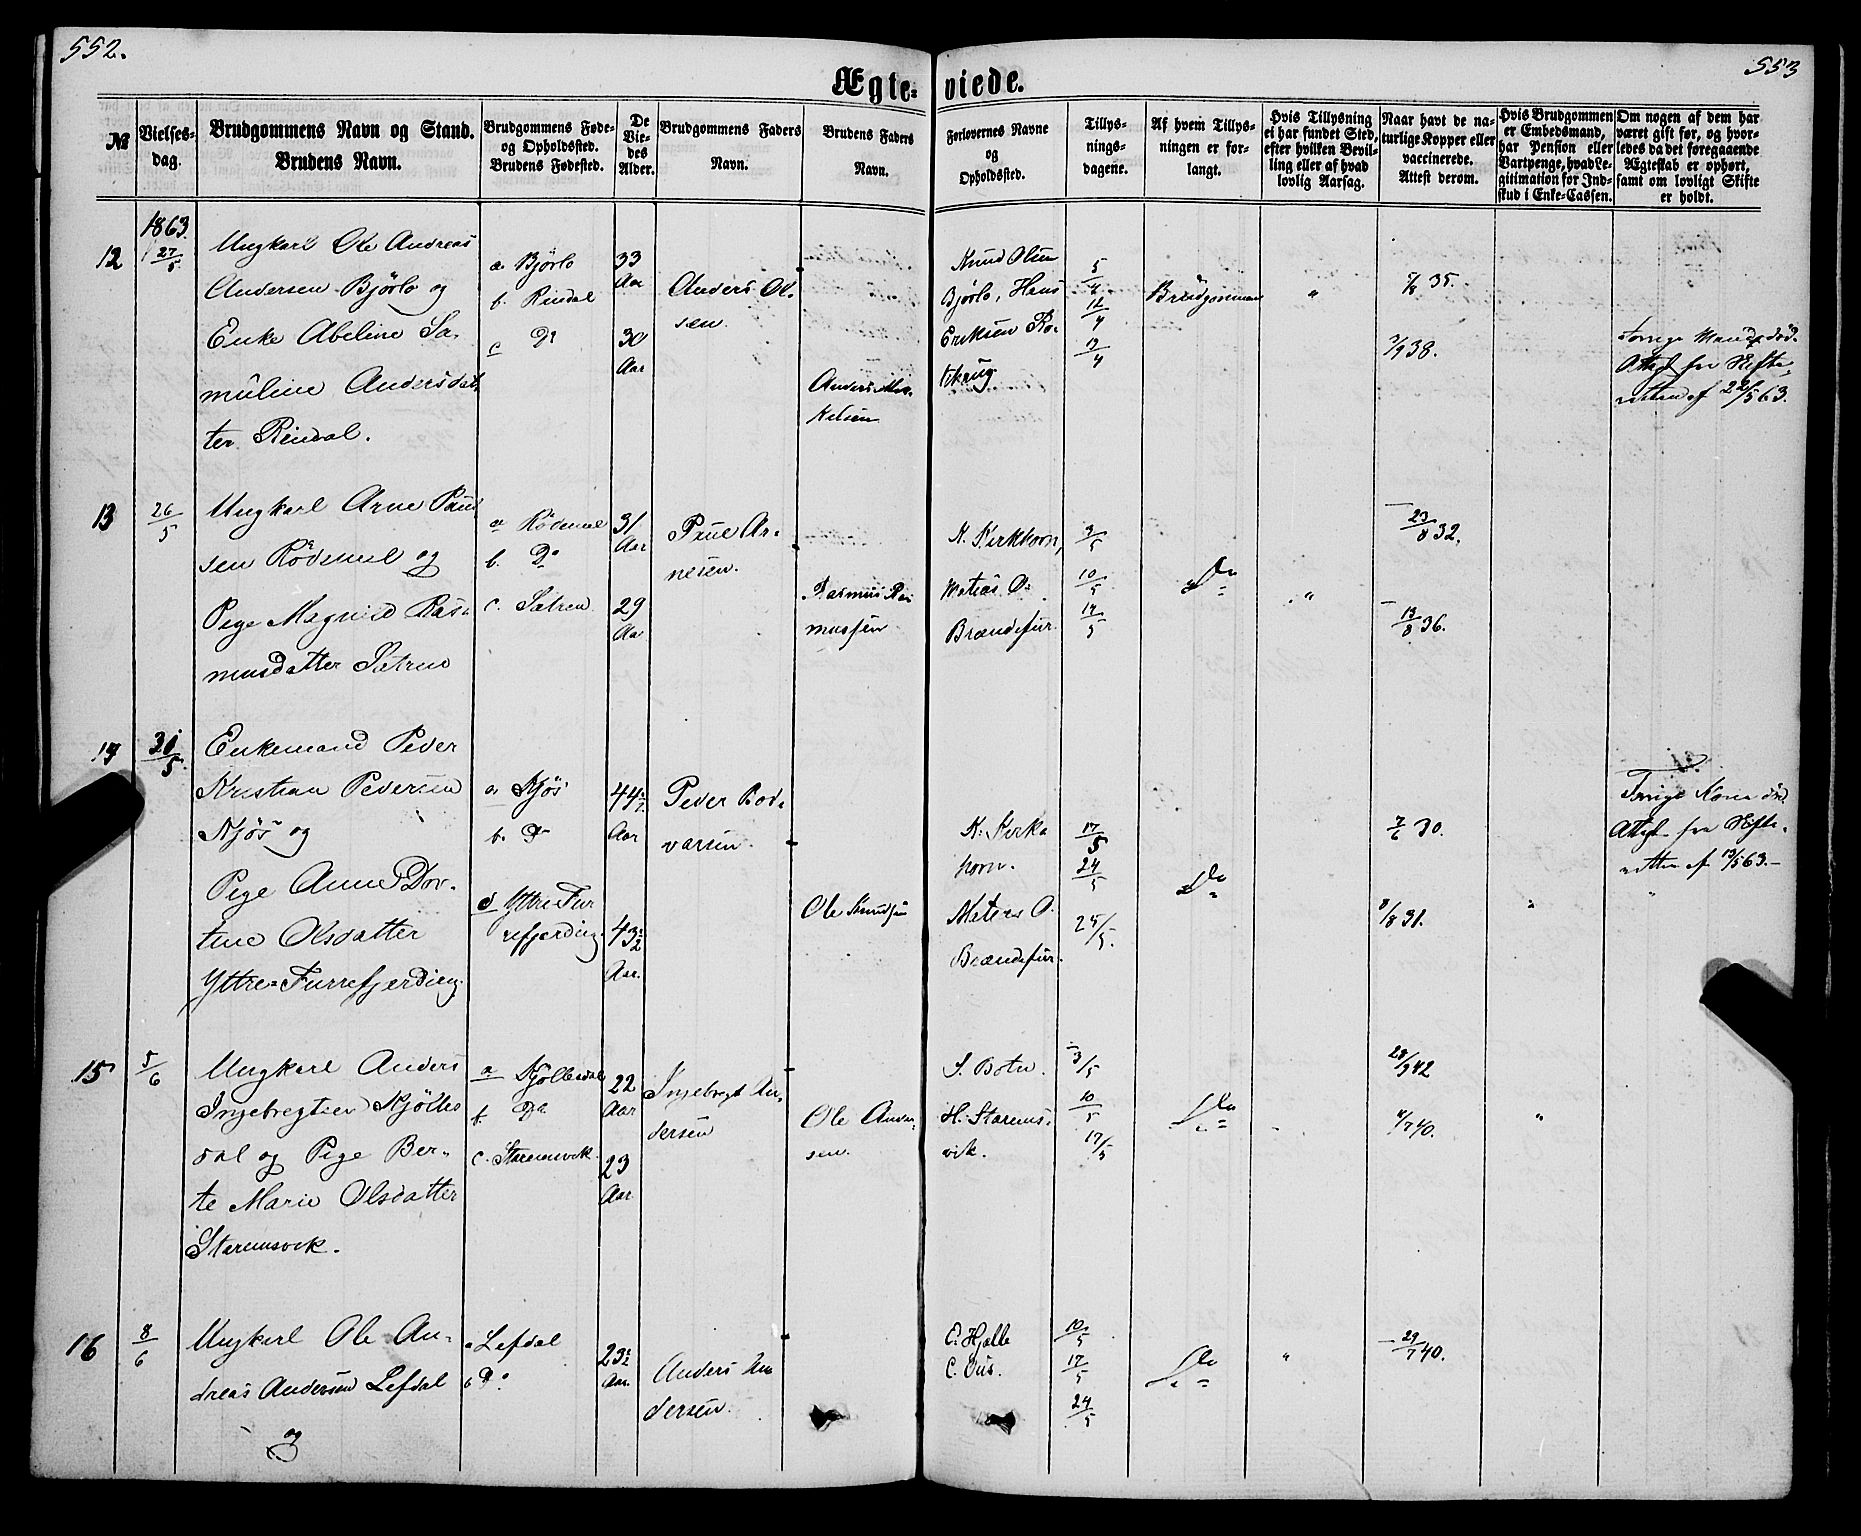 552.
553
Ægte-viede.
№
Vielses-
dag.
Brudgommens Navn og Stand.
Brudens Navn.
Brudgommens Føde-
og Opholdssted.
Brudens Fødested.
De
Vie-
des
Alder.
Brudgommens Faders
Navn.
Brudens Faders
Navn.
Forlovernes Navne
og
Opholdssted.
Tillys-
nings-
dagene.
Af hvem Tillys-
ningen er for-
langt.
Hvis Tillysning
ei har fundet Sted,
efter hvilken Bevil-
ling eller af hvad
lovlig Aarsag.
Naar havt de na-
turlige Kopper eller
vaccinerede.
Attest derom.
Hvis Brudgommen
er Embedsmand,
har Pension eller
Vartpenge, hvad Le-
gitimation for Ind-
skud i Enke-Cassen.
Om nogen af dem har
været gift før, og hvor-
ledes da det foregaaende
Ægteskab er ophørt,
samt om lovligt Skifte
er holdt.
1863.
12
27/5
Ungkarl Ole Andreas
Andersen Bjørlo og
Enke Abeline Sa-
muline Andersdat
ter Rindal.
a. Bjørlo
b. Rindal
c Do
33
Aar
30
Aar
Anders Ol-
sen.
Anders
Knud Olsen
Bjørlo, Hans
Eriksen
5/4
12/4
19/4
Brudgommen
"
35.
38.
Forrige Mand død.
Attest fra Skifte
retten af 22/5 63.
13
26/5
Ungkarl Arne Paul
sen Rødemel og
Pige Magnild Ras-
musdatter Sætren
a Rødemel
b. Do
c. Sætren
31
Aar
29
Aar
Paul Ar-
nesen.
Rasmus Ras
mussen
K. Kirkhorn,
Matias O.
Brændefur.
3/5
10/5
14/5
Do
"
23/8 32.
13/8 36.
14
31/5
Enkemand Peder
Kristian Pedersen
Njøs og
Pige Anne Dor-
tine Olsdatter
Yttre-Furrefjerding
a Njøs
b. Do
d Yttre Fur
refjerding.
44½
Aar
43½
Aar.
Peder Bod-
varsen.
Ole Knudsen
K. Kirke
horn.
Matias O.
Brændefur.
17/5
24/5
25/5.
Do
7/6 30.
8/8 31.
"
Forrige Kone død.
Attest fra Skifte-
retten af 13/5 63.-
"
15
5/6
Ungkarl Anders
Ingebregtsen Kjølles
dal og Pige Ber-
te Marie Olsdatter
Starumsvik.
a Kjøllesdal
b. Do
c. Starumsvik.
22
Aar
23
Aar
Ingebregt An-
dersen
Ole Ander-
sen.
S. Boten.
H. Starums-
vik.
3/5
10/5
17/5
Do
28/9 42
40.
"
16
8/6
Ungkarl Ole An-
dreas Andersen Lefdal
og
a Lefdal
b Do
23½
Aar.
Anders An
dersen.
E. Hjelle
C. Ous.
10/5
17/5
24/5
Do
"
29/7 40.